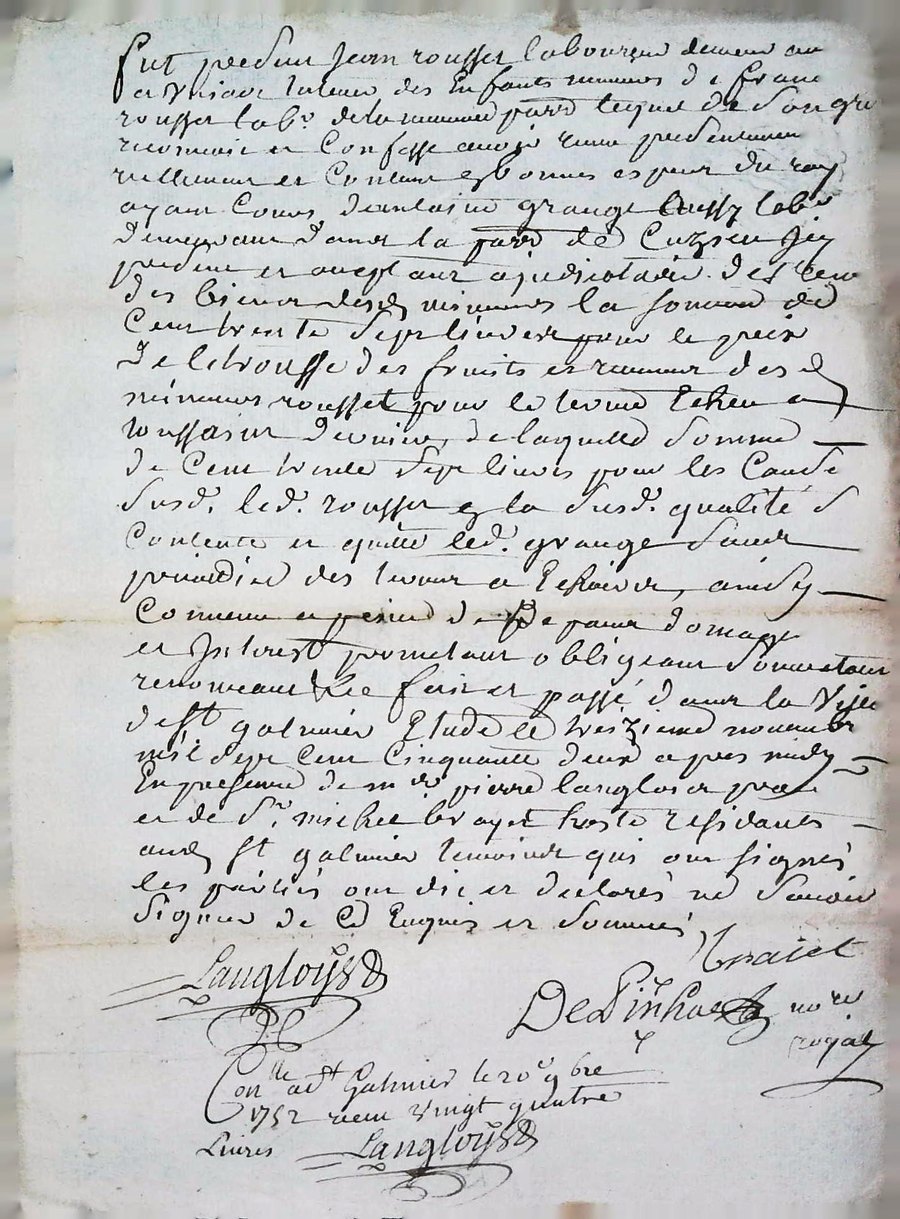 fut presdnt Jean rousset laboureur demeurant au
tuteur des Enfants mineurs de franc
rousset labr. de la mesme parr lequel de son gre
reconnoit et Confesse avoir receu presentement
reellement et Content es bonnes especes du roy
ayant Cours d'antoine grange aussy labr
demeurant dans la parr de Cuzieu Jcy
presdnt et acceptant adjudicataire des
des biens desd mineurs la somme de
Cent trente Sept livres pour le prix
de la trousse des fruits et revenus desd
mineurs rousset pour le terme Echeu a
toussaint dernier, de laquelle Somme
de Cent trente Sept livres pour les Cause
Susd. led. rousset en la Susd. qualité S
Contente et quitte led. grange sans
prejudice des termes a Echeoir, ainsy
Convenu a peine de Depans domage
et Interest promettant obligeant Soumettant
renonceant &c fait et passé dans la Ville
de St galmier Etude le treizieme novembr
mil Sept Cent Cinquante deux apres midy
En presence de me pierre langlois pror
et de Sr. michel brayet hoste residants
aud St galmier temoins qui ont signés
les partiés ont dit et declarés ne Savoir
Signer de Ce Enquis et Sommés,
Langloys
Braiet
DesPinhac no.re
royal
Conlle a St Galmier le 20e 9bre
1752 receu vingt quatre
Livres Langloys